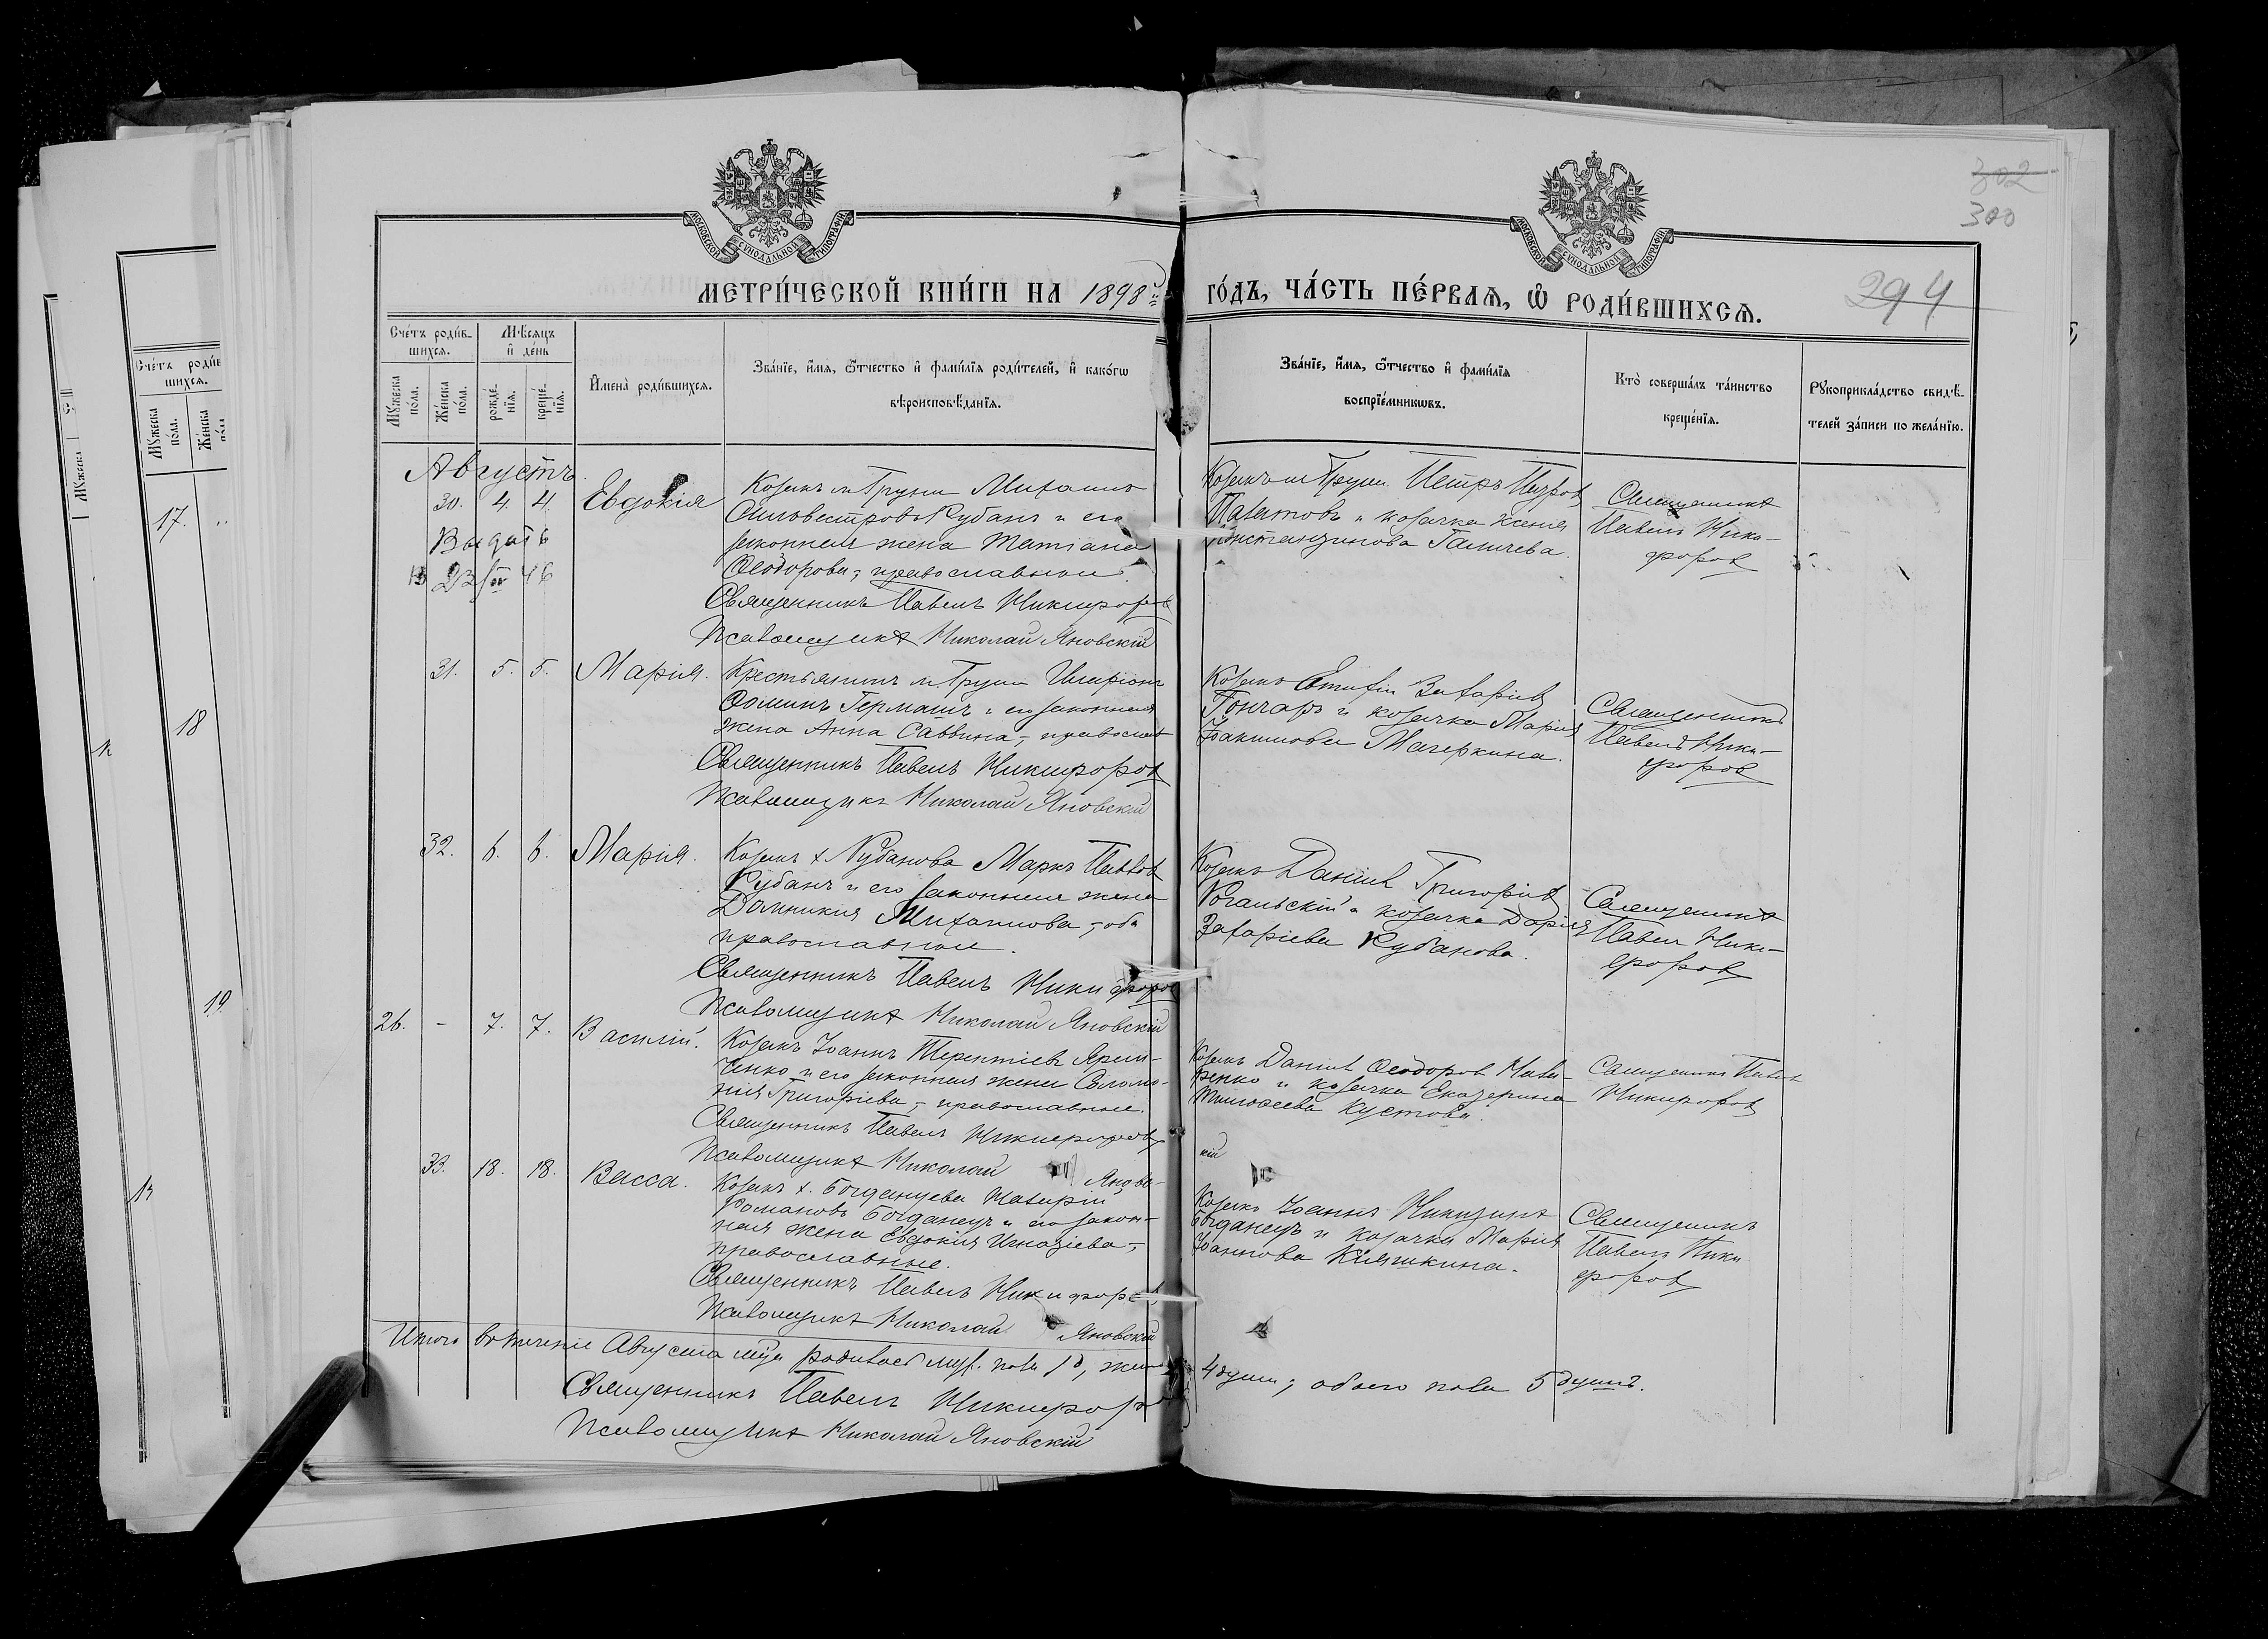 302
300
294
МОСКОВСКОЙ СУНОДАЛЬНОЙ ТИПОГРАФІИ
МОСКОВСКОЙ СУНОДАЛЬНОЙ ТИПОГРАФІИ
МЕТРИ́ЧЕСКОЙ КНИ́ГИ НА 1898 й
ГО́ДЪ, ЧА́СТЬ ПЕ́РВАѦ, Ѽ РОДИ́ВШИХСѦ.
Сче́тъ роди́в-
шихсѧ.
Мѣ́сѧцъ
и҆ де́нь
Мꙋ́жеска
по́ла.
Же́нска
по́ла.
рожде́-
нїѧ.
креще́-
нїѧ.
И҆мена̀ роди́вшихсѧ.
Зва́нїе, и҆́мѧ, ѻ҆́тчество и҆ фами́лїѧ роди́телей, и҆ како́гѡ
вѣроисповѣ́данїѧ.
Зва́нїе, и҆́мѧ, ѻ҆́тчество и҆ фами́лїѧ
воспрїе́мникѡвъ.
Кто̀ соверша́лъ та́инство
креще́нїѧ.
Рꙋкоприкла́дство свидѣ́-
телей за́писи по жела́нїю.
Августъ
30. 4. 4. Евдокія
Козакъ м. Груни Михаилъ
Сильвестровъ Рубанъ и его
законная жена Татіана
Ѳеодорова, православные.
Священникъ Павелъ Никифоровъ
Псаломщикъ Николай Яновскій
Козакъ м. Груни Петръ
и козачка Ксенія
Константинова
Священникъ
Павелъ Ники-
форовъ
31. 5. 5. Марія.
Крестьянинъ м. Груни Иларіонъ
Ѳоминъ и его законная
жена Анна Саввина, православ
Священникъ Павелъ Никифоровъ
Псаломщикъ Николай Яновскій
Козакъ Захаріевъ
Гончаръ и козачка Марія
Іоакимова Мачеркина.
Священникъ
Павелъ Ники-
форовъ
32. 6. 6. Марія.
Козакъ х. Рубанова Маркъ Павловъ
Рубанъ и его законная жена
Домникія Михаилова, оба
православные.
Священникъ Павелъ Никифоровъ
Псаломщикъ Николай Яновскій
Козакъ Даніилъ Григоріевъ
Рогальскій и козачка Дарія
Захаріева Рубанова.
Священникъ
Павелъ Ники-
форовъ
26. - 7. 7. Василій.
Козакъ Іоаннъ Терентіевъ Ярем-
ченко и его законная жена Соломо-
нія Григоріева, православные.
Священникъ Павелъ Никифоровъ
Псаломщикъ Николай Яновс-
кій
Козакъ Даніилъ Ѳеодоровъ
и козачка Екатерина
Тимоѳеева Кустова.
Священникъ Павелъ
Никифоровъ
33. 18. 18. Васса.
Козакъ х. Богданцева
Романовъ Богданецъ и его закон-
ная жена Евдокія Игнатіева,
православные.
Священникъ Павелъ Никифоровъ
Псаломщикъ Николай Яновскій
Козакъ Іоаннъ Никитинъ
Богданецъ и козачка Марія
Іоаннова Кияшкина.
Священникъ
Павелъ Ники
форовъ
Итого въ теченіе Августа м-ца родилось муж. пола 1, женс 4 души, обоего пола 5 душъ.
Священникъ Павелъ Никифоровъ
Псаломщикъ Николай Яновскій
Сче́тъ роди́в
шихсѧ.
Мꙋ́жеска
по́ла.
Же́нска
17.
18
19